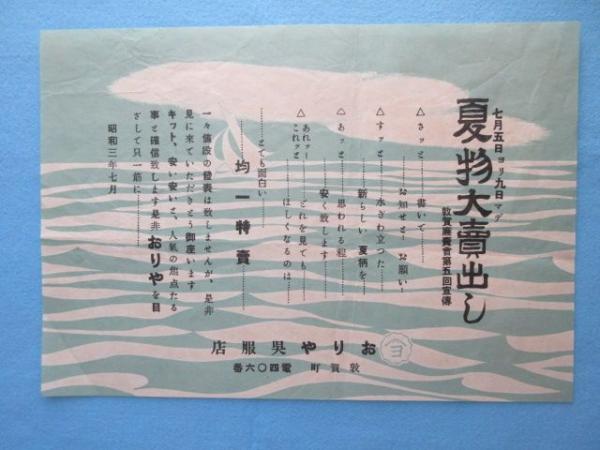 七月五日ヨリ九日マデ
夏物大賣出し
敦賀廉賣會第五回宣傳
△さッと……書いて……
……お知せと!お願い!
△すッと……水ぎわ立つた……
……新らしい夏柄を……
△あッと……思われる程……
……安く致します……
△あれッー これッと ……どれを見ても……
……ほしくなるのは……
……とても面白い……
均一特賣
一々値段の發表は致しませんが、是非
見に來ていただきとう御座います
キット、安い安いと、人氣の焦点たる
事と確信致します是非おりやを目
ざして只一筋に……
昭和三年七月
ヨ
おりや呉服店
敦賀町 電四〇六番